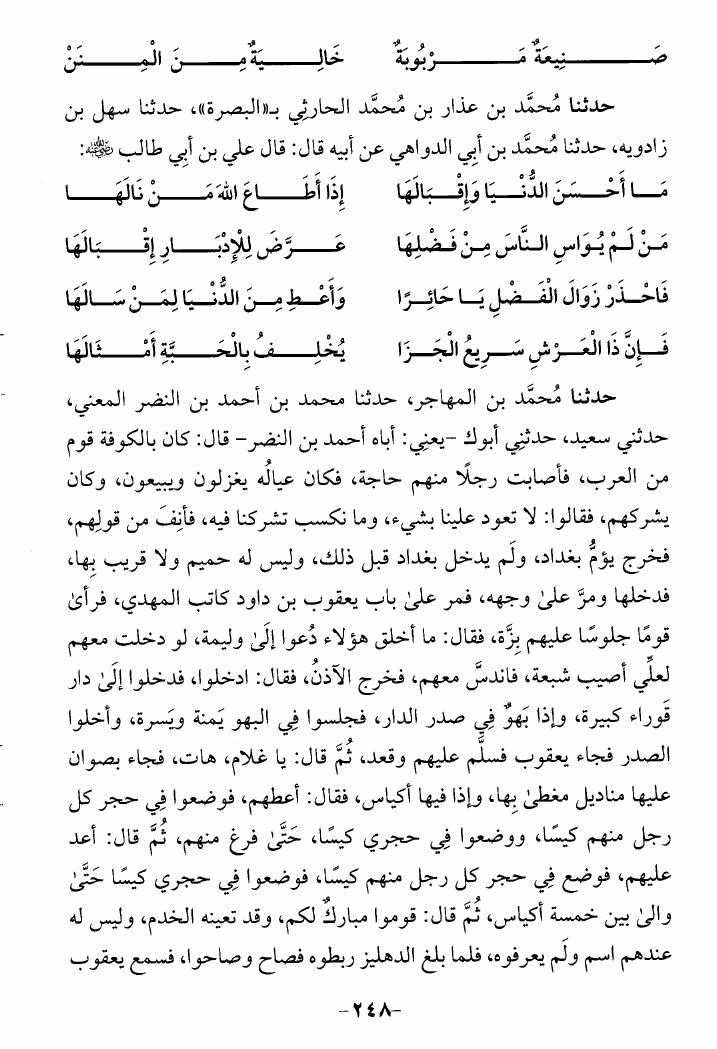 صَنِيعَةٌ مَرْبُوبَةٌ خَالِيَةٌ مِنَ الْمِنَنْ
حدثنا مُحمَّد بن عذار بن مُحمَّد الحارثي بـ«البصرة»، حدثنا سهل بن
زادويه، حدثنا مُحمَّد بن أبِي الدواهي عن أبيه قال: قال علي بن أبِي طالب ﵁:
مَا أَحْسَنَ الدُّنْيَا وَإِقْبَالَهَا إِذَا أَطَاعَ اللهَ مَنْ نَالَهَا
مَنْ لَمْ يُوَاسِ النَّاسَ مِنْ فَضْلِهَا عَرَّضَ لِلْإِدْبَارِ إِقْبَالَهَا
فَاحْذَرْ زَوَالَ الْفَضْلِ يَا حَائِرًا وَأَعْطِ مِنَ الدُّنْيَا لِمَنْ سَالَهَا
فَإِنَّ ذَا الْعَرْشِ سَرِيعُ الْجَزَا يُخْلِفُ بِالْحَبَّةِ أَمْثَالَهَا
حدثنا مُحمَّد بن المهاجر، حدثنا محمد بن أحمد بن النضر المعني،
حدثني سعيد، حدثنِي أبوك -يعنِي: أباه أحمد بن النضر- قال: كان بالكوفة قوم
من العرب، فأصابت رجلًا منهم حاجة، فكان عيالُه يغزلون ويبيعون، وكان
يشركهم، فقالوا: لا تعود علينا بشيء، وما نكسب تشركنا فيه، فأنِفَ من قولِهم،
فخرج يؤمُّ بغداد، ولَم يدخل بغداد قبل ذلك، وليس له حميم ولا قريب بِها،
فدخلها ومرَّ علىٰ وجهه، فمر علىٰ باب يعقوب بن داود كاتب المهدي، فرأىٰ
قومًا جلوسًا عليهم بِزَّة، فقال: ما أخلق هؤلاء دُعوا إلَىٰ وليمة، لو دخلت معهم
لعلِّي أصيب شبعة، فاندسَّ معهم، فخرج الآذنُ، فقال: ادخلوا، فدخلوا إلَىٰ دار
قَوراء كبيرة، وإذا بَهوٌ فِي صدر الدار، فجلسوا فِي البهو يَمنة ويَسرة، وأخلوا
الصدر فجاء يعقوب فسلَّم عليهم وقعد، ثُمَّ قال: يا غلام، هات، فجاء بصوان
عليها مناديل مغطىٰ بِها، وإذا فيها أكياس، فقال: أعطهم، فوضعوا فِي حجر كل
رجل منهم كيسًا، ووضعوا فِي حجري كيسًا، حَتَّىٰ فرغ منهم، ثُمَّ قال: أعد
عليهم، فوضع فِي حجر كل رجل منهم كيسًا، فوضعوا فِي حجري كيسًا حَتَّىٰ
والىٰ بين خمسة أكياس، ثُمَّ قال: قوموا مباركٌ لكم، وقد تعينه الخدم، وليس له
عندهم اسم ولَم يعرفوه، فلما بلغ الدهليز ربطوه فصاح وصاحوا، فسمع يعقوب
-٢٤٨-